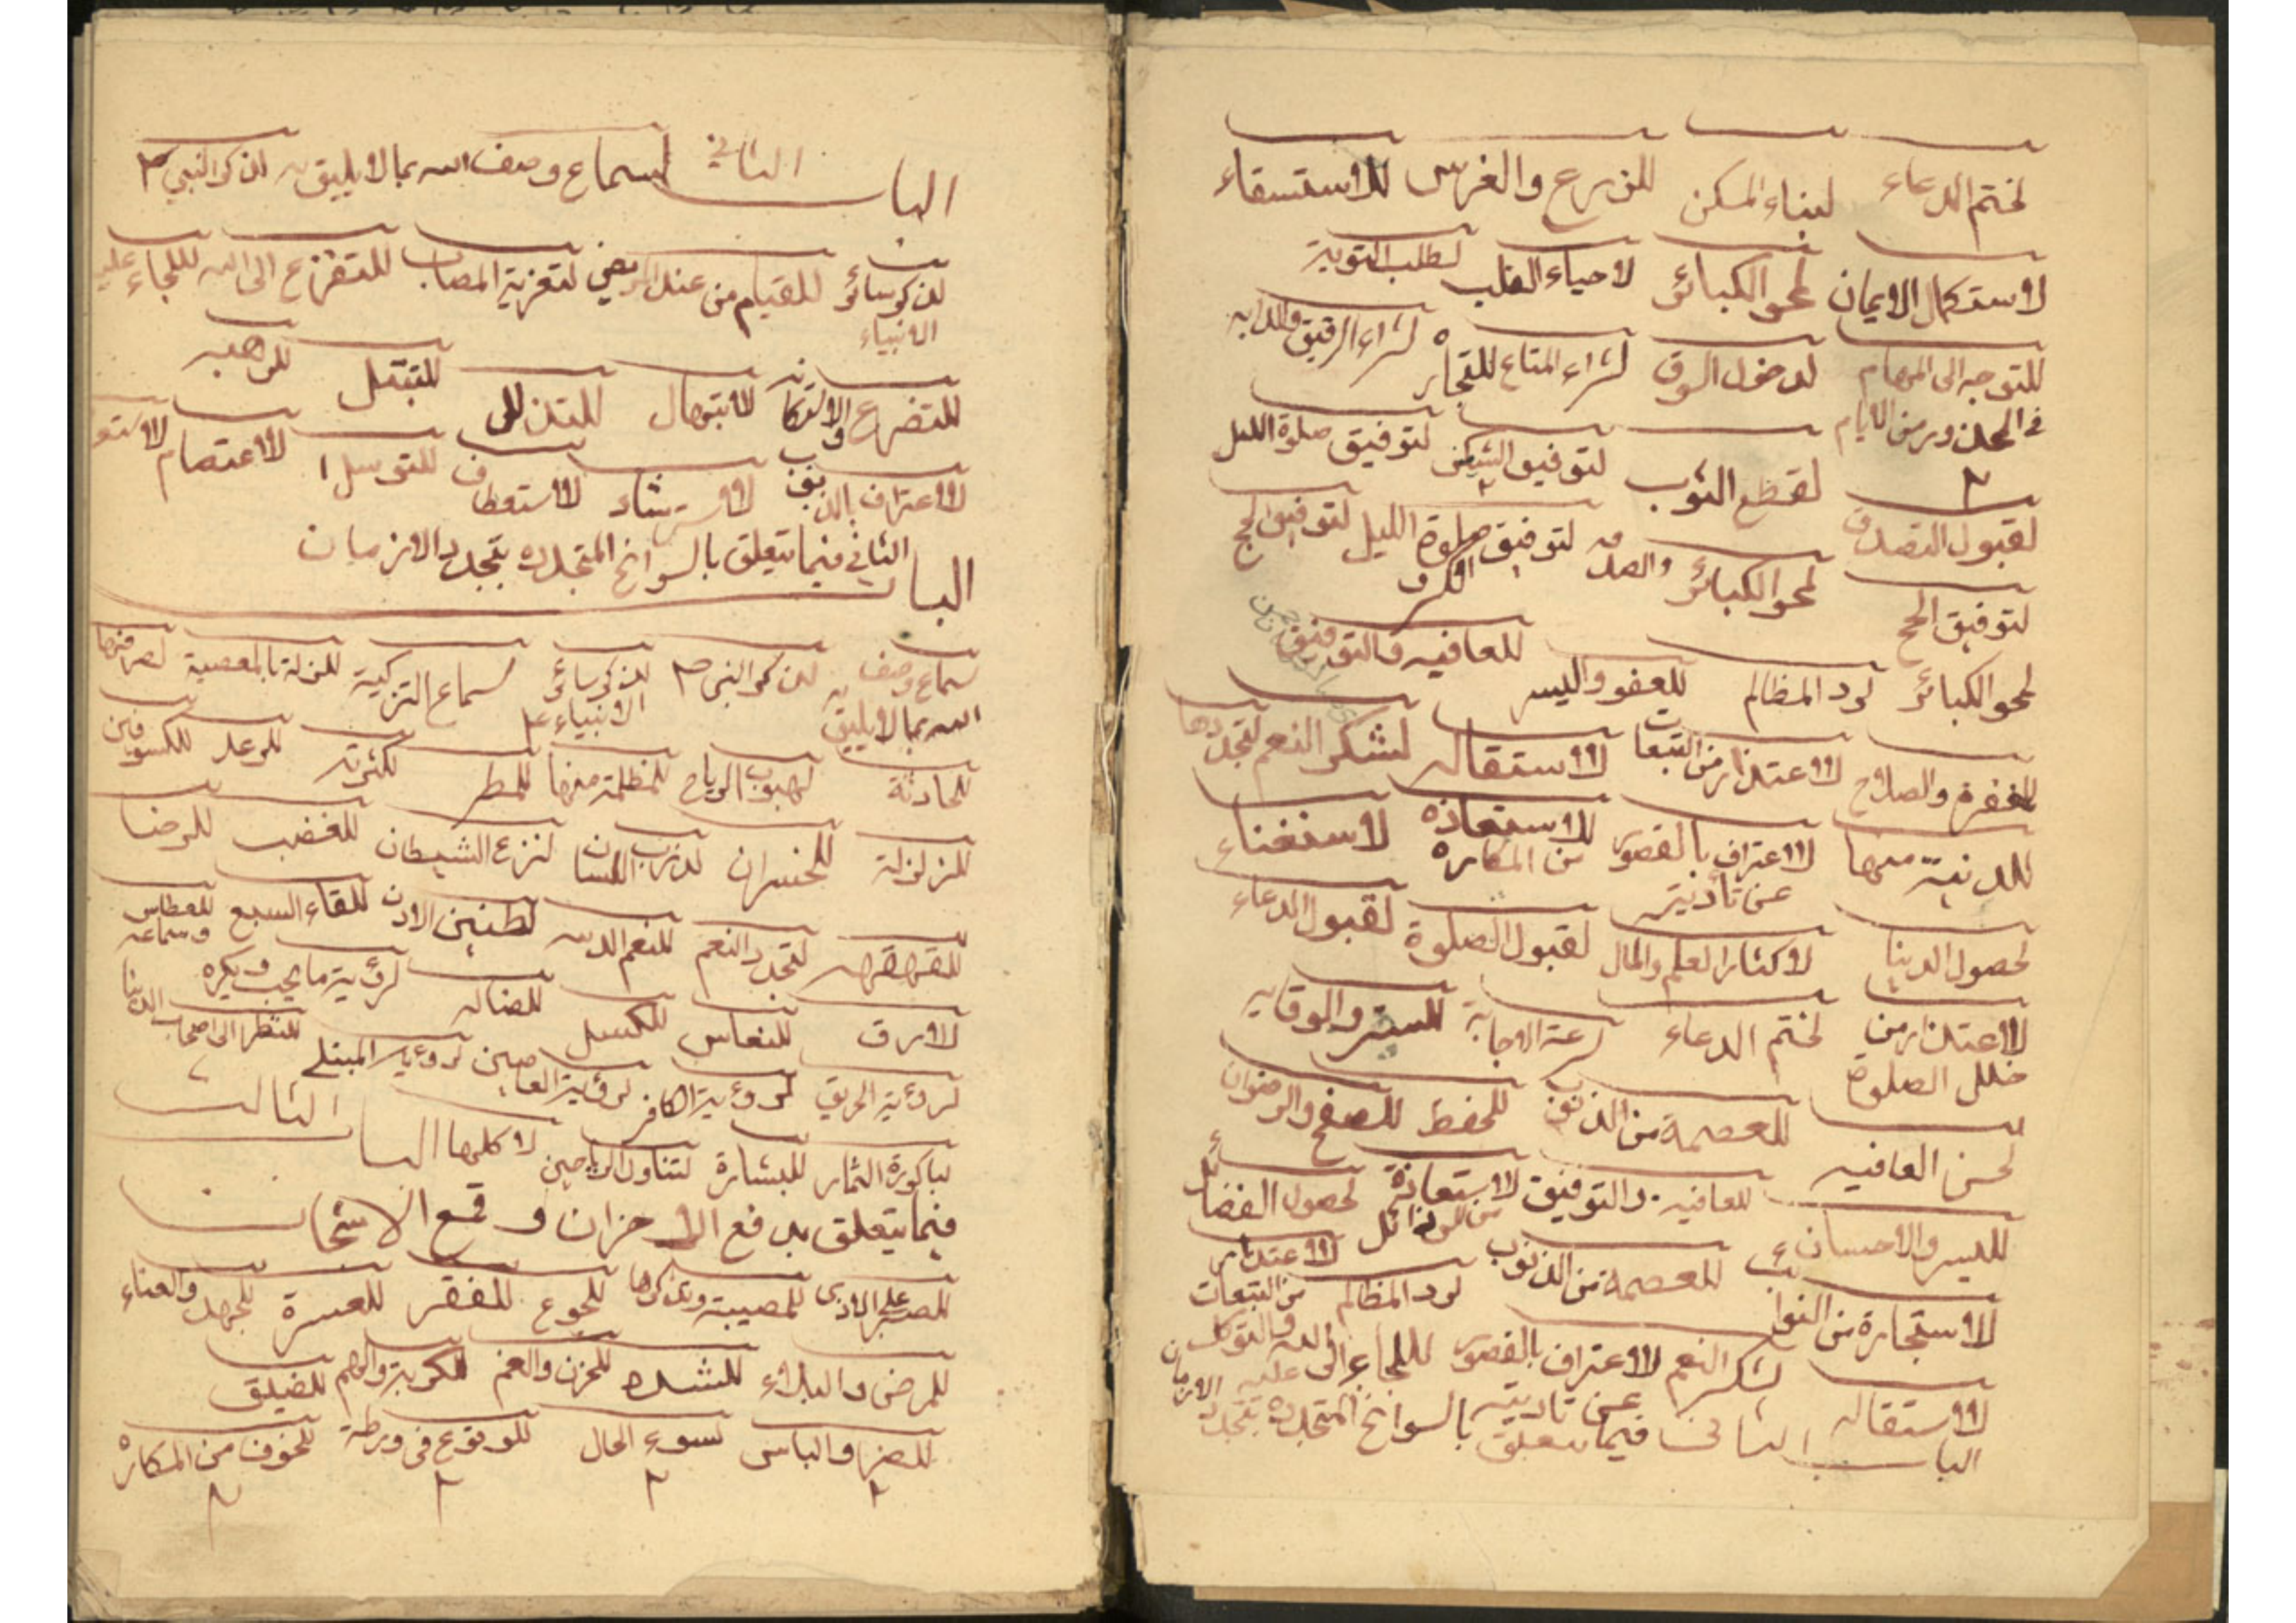 لختم الدعاء لبناء المسكن للزرع والغرس للاستسقاء
لاستكمال الايمان لمحو الكبائر لاحياء القلب لطلب التوبة
للتوجه الى المهام لدخول السوق لشراء المتاع للتجارة لشراء الرقيق والدابه
لقطع الثوب لتوفيق صلوة الليل
لقبول التصدق لمحو الكبائر والصدقه لتوفيق صلوة الليل لتوفيق الحج
لتوفيق الحج
لمحو الكبائر لرد المظالم للعفو واليسر للعافيه والتوفيق
للمغفرة والصلاح للاعتذار من التبعات للاستقاله لشكر النعم لتجددها
للدنية منها للاعتراف بالقصور عن تأديته للاستعاذه من المكاره لاستغناء
لحصول الدنيا لاكثار العلم والمال لقبول الصلوة لقبول الدعاء
للاعتذار من خلل الصلوة لختم الدعاء لسرعة الاجابة للستر والوقايه
لحسن العافيه للعصمة من الذنوب للحفظ للصفح والرضوان
لليسر والاحسان للعافيه والتوفيق للاستعاذة من الرذائل لحصول الفضائل
للاستجارة من النوائب للعصمة من الذنوب لرد المظالم للاعتذار من التبعات
للاستقاله لشكر النعم للاعتراف بالقصور عن تاديته للالجاء الى الله والتوكل عليه
الباب الثانى فيما يتعلق بالسوانح المتجدده بتجدد الازمان
الباب الثاني لسماع وصف الله بما لا يليق به لذكر النبي ص
لذكر سائر الانبياء للقيام من عند المريض لتعزية المصاب للتفزع الى الله لللجاء عليه
للتضرع والاستكانه للابتهال للتذلل للتبتل للرهبه
للاعتراف بالذنوب للاسترشاد للاستعطاف للتوسل للاعتصام
الباب الثاني فيما يتعلق بالسوانح المتجدده بتجدد الازمان
لسماع وصف الله بما لا يليق به لذكر النبى ص لذكر سائر الانبياء ع لسماع التزكية للزلة بالمعصية لصرفها
للحادثة لهبوب الرياح للمظلمة منها للمطر لكثرته للرعد للكسوفين
للزلزلة للخسران لذرب اللسان لنزع الشيطان للغضب للرضا
للقهقهه لتجدد النعم للنعم الدسه لطنين الاذن للقاء السبع للعطاس وسماعه
للارق للنعاس للكسل للضاله لرؤية ما يحب ويكره
لرؤية الحريق لرؤية الكافر لرؤية العاصين لرؤية المبتلى للنظر الى اصحاب الدنيا
لباكورة الثمار للبشارة لتناول الرياحين لاكلها الباب الثالث
فيما يتعلق بدفع الاحزان و قمع الاشجان
للصبر على الاذى للمصيبة وتذكرها للجوع للفقر للعسرة للجهد والعناء
للمرض والبلاء للشده للحزن والغم للكربة والهم للضيق
للضر والباس لسوء الحال للوقوع فى ورطة للخوف من المكاره